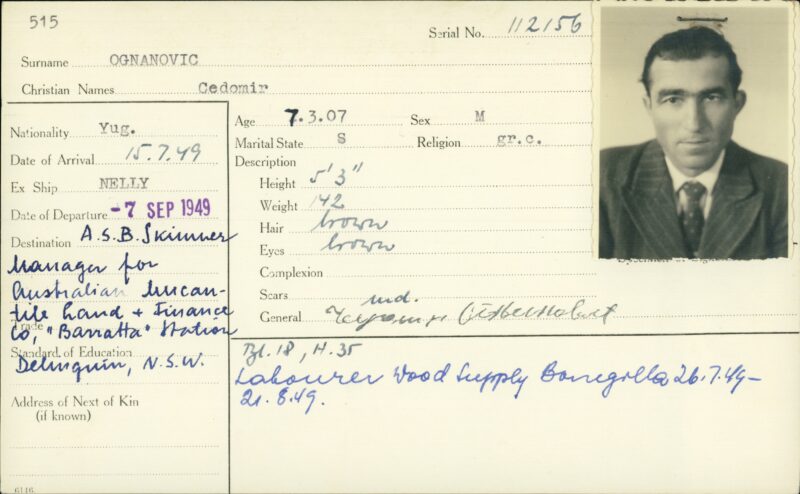 515
Serial No. 112156
Surname OGNANOVIC
Christian Names Cedomir
Nationality Yug.
Date of Arrival 15.7.49
Ex Ship NELLY
Date of Departure -7 SEP 1949
Destination A.S.B. Skinner
Manager for
Australian Mercan-
tile Land + Finance
Co, "Barratta" Station
Trade
Standard of Education
Deliniquin, N.S.W.
Address of Next of Kin
(if known)
6146
Age 7.3.07 Sex M
Marital State S Religion gr.c.
Description
Height 5' 3"
Weight 142
Hair brown
Eyes brown
Complexion
Scars
General ind.
Bl. 18, H. 35
Labourer Wood Supply Bonegilla 26.7.49 –
21.8.49.